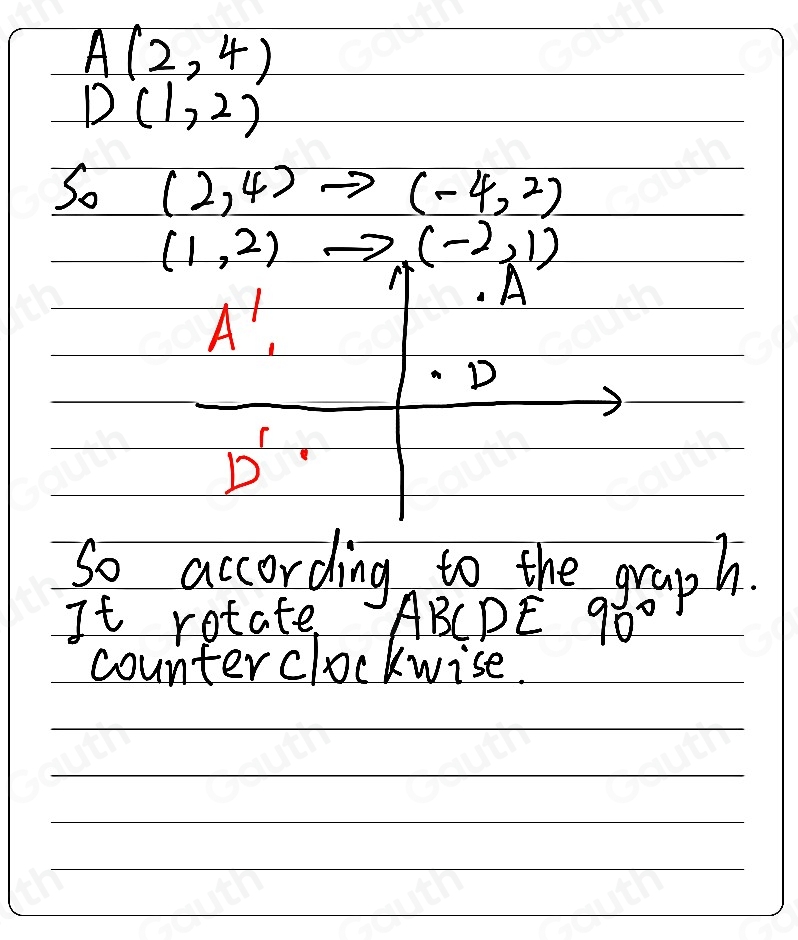 A(2,4)
D(1,2)
So (2,4) → (-4,2)
(1,2) → (-2,1)
. A
A'.
. D
D' .
So according to the graph.
It rotate ABCDE 90°
counterclockwise.
Gauth